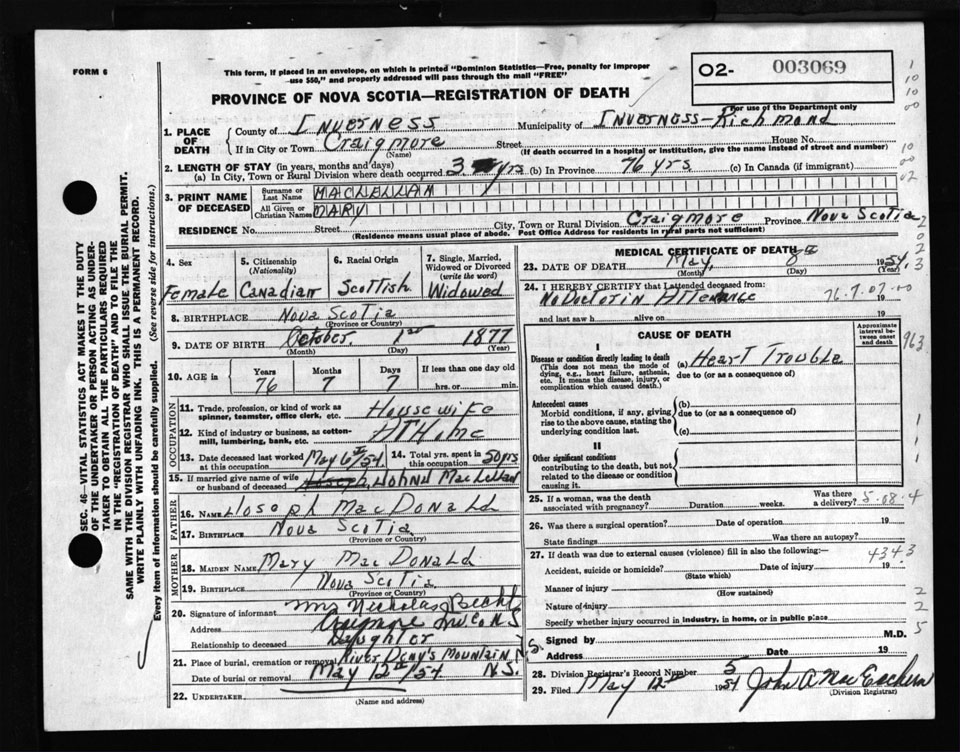 FORM 6
This form, if placed in an envelope, on which is printed "Dominion Statistics—Free, penalty for improper
use $50," and properly addressed will pass through the mail "FREE"
O2- 003069
For use of the Department only
PROVINCE OF NOVA SCOTIA—REGISTRATION OF DEATH
SEC. 46—VITAL STATISTICS ACT MAKES IT THE DUTY
OF THE UNDERTAKER OR PERSON ACTING AS UNDER-
TAKER TO OBTAIN ALL THE PARTICULARS REQUIRED
IN THE "REGISTRATION OF DEATH" AND TO FILE THE
SAME WITH THE DIVISION REGISTRAR WHO SHALL ISSUE THE BURIAL PERMIT.
WRITE PLAINLY WITH UNFADING INK. THIS IS A PERMANENT RECORD.
Every item of information should be carefully supplied. (See reverse side for instructions.)
1. PLACE OF DEATH County of Inverness Municipality of Inverness-Richmond
If in City or Town Craigmore Street House No.
(Name) (If death occurred in a hospital or institution, give the name instead of street and number)
2. LENGTH OF STAY (in years, months and days)
(a) In City, Town or Rural Division where death occurred 3 yrs (b) In Province 76 yrs (c) In Canada (if immigrant)
3. PRINT NAME OF DECEASED Surname or Last Name MACLELLAN
All Given or Christian Names MARY
RESIDENCE No. Street City, Town or Rural Division Craigmore Province Nova Scotia
(Residence means usual place of abode. Post Office Address for residents in rural parts not sufficient)
4. Sex Female
5. Citizenship (Nationality) Canadian
6. Racial Origin Scottish
7. Single, Married, Widowed or Divorced (write the word) Widowed
8. BIRTHPLACE Nova Scotia
(Province or Country)
9. DATE OF BIRTH October 1st 1877
(Month) (Day) (Year)
10. AGE in Years 76 Months 7 Days 7 If less than one day old hrs. or min.
OCCUPATION
11. Trade, profession, or kind of work as spinner, teamster, office clerk, etc. Housewife
12. Kind of industry or business, as cotton-mill, lumbering, bank, etc. At Home
13. Date deceased last worked at this occupation May 6th/54 14. Total yrs. spent in this occupation 50 yrs
15. If married give name of wife or husband of deceased Joseph John MacLellan
FATHER
16. NAME Joseph MacDonald
17. BIRTHPLACE Nova Scotia
(Province or Country)
MOTHER
18. MAIDEN NAME Mary MacDonald
19. BIRTHPLACE Nova Scotia
(Province or Country)
20. Signature of informant Mrs Nicholas
Address Craigmore Inv. Co N.S
Relationship to deceased Daughter
21. Place of burial, cremation or removal River Deny's Mountain N.S.
Date of burial or removal May 12th/54 N.S.
22. UNDERTAKER
(Name and address)
MEDICAL CERTIFICATE OF DEATH
23. DATE OF DEATH May, 8th 1954
(Month) (Day) (Year)
24. I HEREBY CERTIFY that I attended deceased from:
No Doctor in Attendance 19
and last saw h alive on 19
CAUSE OF DEATH
Approximate interval between onset and death
I
Disease or condition directly leading to death
(This does not mean the mode of dying, e.g., heart failure, asthenia, etc. It means the disease, injury, or complication which caused death.)
(a) Heart Trouble
due to (or as a consequence of)
Antecedent causes
Morbid conditions, if any, giving rise to the above cause, stating the underlying condition last.
(b)
due to (or as a consequence of)
(c)
II
Other significant conditions
contributing to the death, but not related to the disease or condition causing it.
25. If a woman, was the death associated with pregnancy? Duration weeks. Was there a delivery?
26. Was there a surgical operation? Date of operation 19
State findings Was there an autopsy?
27. If death was due to external causes (violence) fill in also the following:
Accident, suicide or homicide? Date of injury 19
(State which)
4343
Manner of injury
(How sustained)
Nature of injury
Specify whether injury occurred in industry, in home, or in public place
Signed by M.D.
Address Date 19
28. Division Registrar's Record Number 5
29. Filed May 12th 1954 John A MacEachern
(Division Registrar)